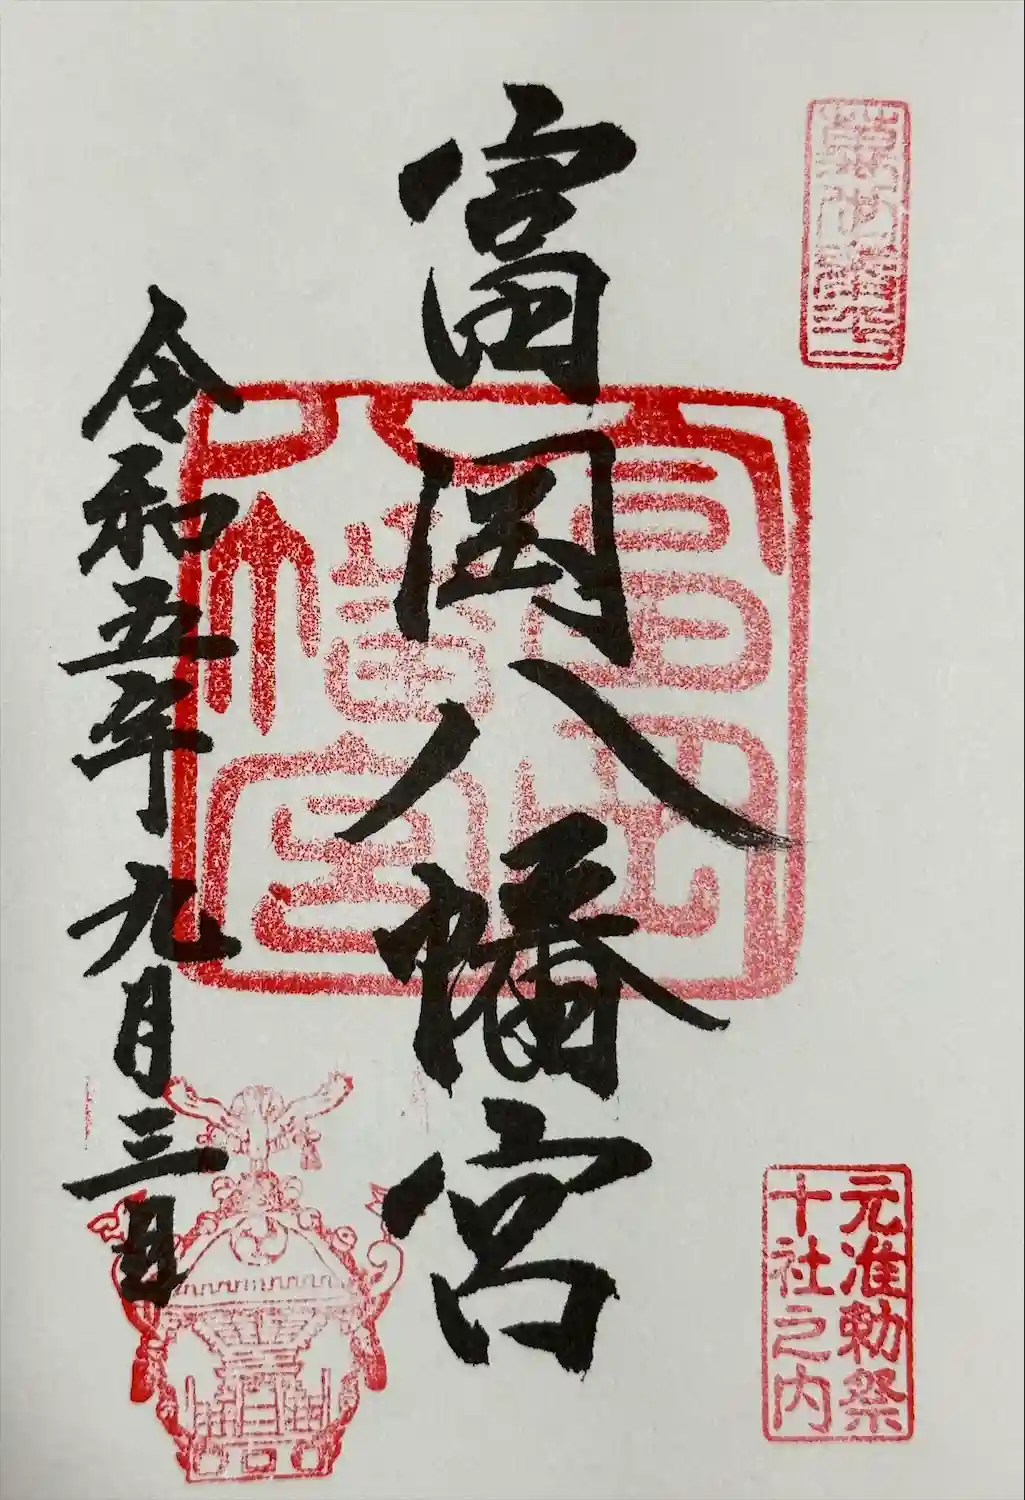 元准勅祭
十社之内
富岡八幡宮
富岡
八幡宮
令和五年九月三日